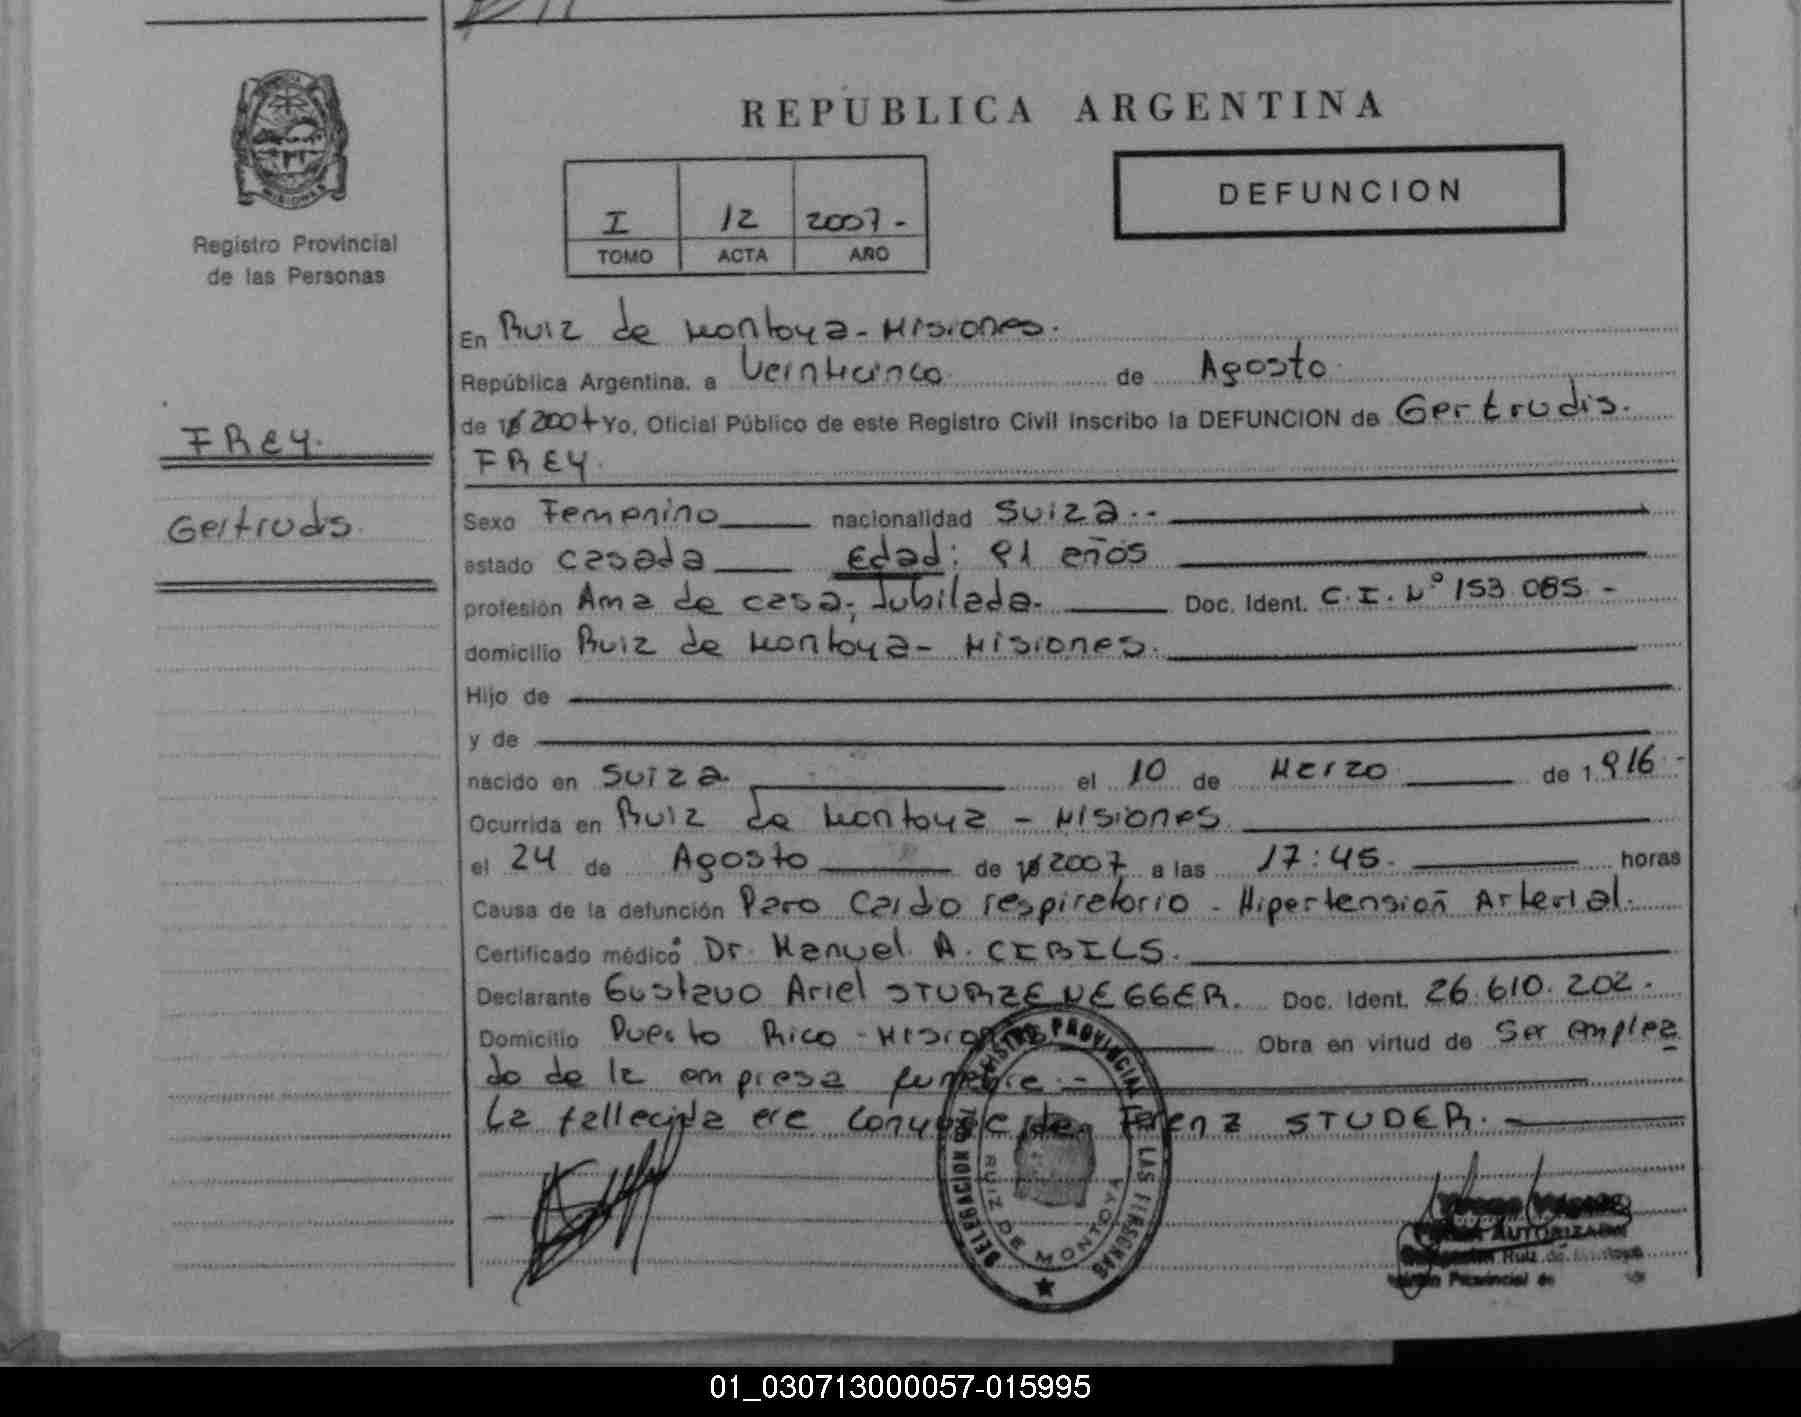 REPUBLICA ARGENTINA
MISIONES
Registro Provincial
de las Personas
I 12 2007-
TOMO ACTA AÑO
DEFUNCION
En Ruiz de Montoya - Misiones.
República Argentina, a Veinticinco de Agosto
de 2007 Yo, Oficial Público de este Registro Civil inscribo la DEFUNCION de Gertrudis.
FREY.
FREY.
Gertrudis.
Sexo Femenino nacionalidad Suiza.-
estado casada Edad: 91 años
profesión Ama de casa; Jubilada. Doc. Ident. C.I. Nº 153.085.-
domicilio Ruiz de Montoya - Misiones.
Hijo de
y de
nacido en Suiza. el 10 de Marzo de 1.916.-
Ocurrida en Ruiz de Montoya - Misiones.
el 24 de Agosto de 2007 a las 17:45. horas
Causa de la defunción Paro Cardo respiratorio - Hipertensión Arterial.
Certificado médico Dr. Manuel A. CIBILS.
Declarante Gustavo Ariel STURZENEGGER. Doc. Ident. 26.610.202.-
Domicilio Puerto Rico - Misiones Obra en virtud de ser emplea
do de la empresa funebre.-
La fallecida era conyuge de STUDER.
DELEGACION REGISTRO PROVINCIAL LAS PERSONAS
RUIZ DE MONTOYA
AUTORIZADA
Ruiz de Montoya
Provincial de
01_030713000057-015995